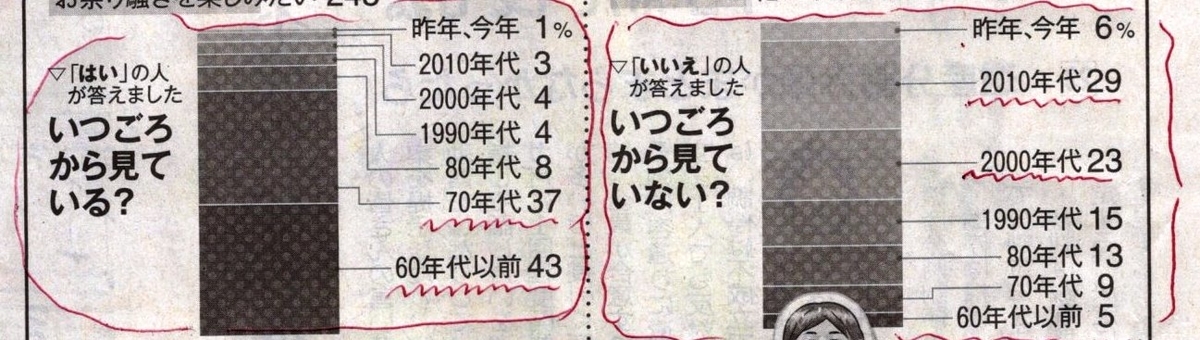 お祭り騒ぎを楽しみたい 248
▽「はい」の人
が答えました
いつごろ
から見て
いる?
昨年、今年 1%
2010年代 3
2000年代 4
1990年代 4
80年代 8
70年代 37
60年代以前 43
▽「いいえ」の人
が答えました
いつごろ
から見て
いない?
昨年、今年 6%
2010年代 29
2000年代 23
1990年代 15
80年代 13
70年代 9
60年代以前 5